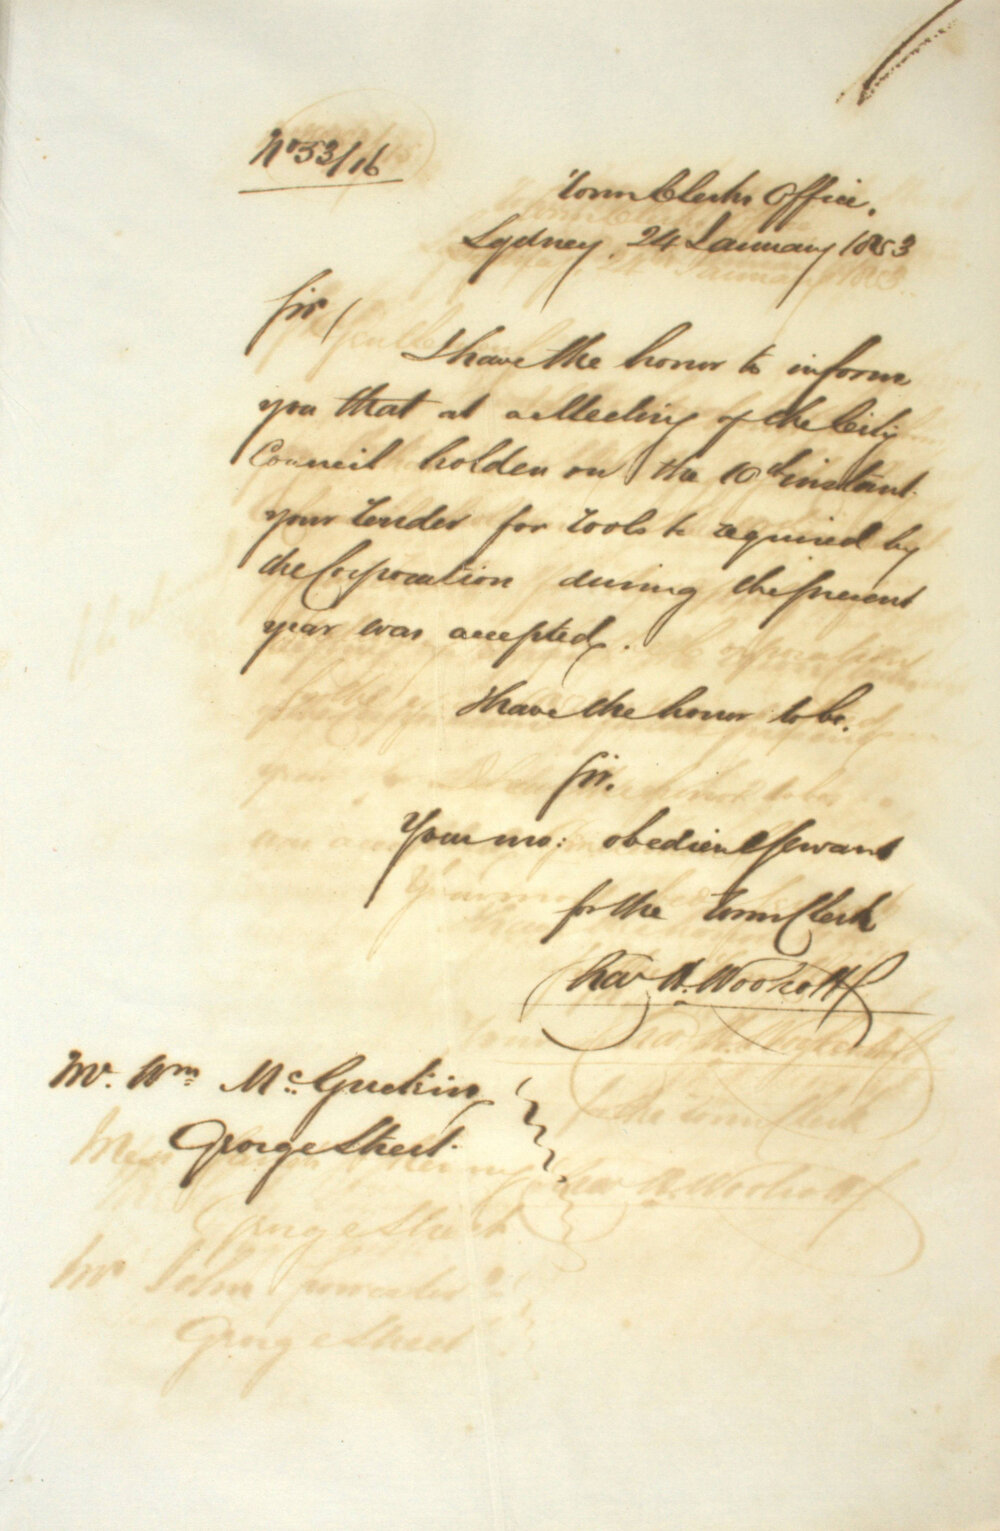 No 53/16
Town Clerks Office,
Sydney, 24 January 1853
Sir,
I have the honor to inform
you that at a Meeting of the City
Council holden on the 10th instant
your Tender for Tools to required by
the Corporation during the present
year was accepted.
I have the honor to be,
Sir,
Your mo: obedient Servant
for the Town Clerk
Chas H. Woolcott
Mr. Wm Mc.
George Street